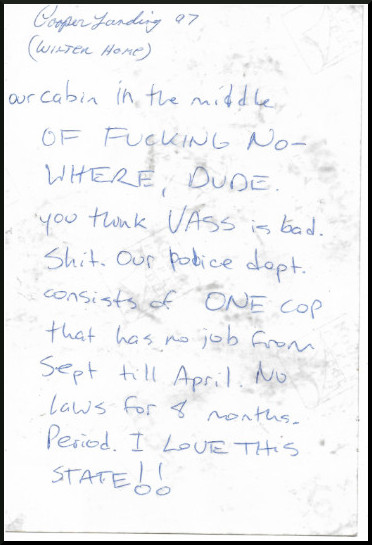 Cooper Landing 97
(WINTER HOME)
our cabin in the middle
OF FUCKING NO-
WHERE, DUDE.
you think VASS is bad.
Shit. Our police dept.
consists of ONE COP
that has no job from
Sept till April. No
laws for 8 months.
Period. I LOVE THIS
STATE!!